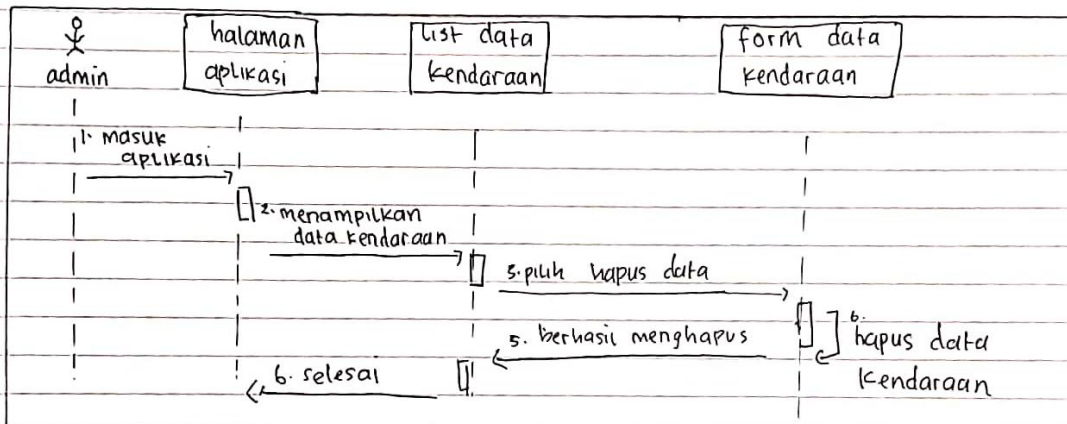 admin
halaman
aplikasi
list data
kendaraan
form data
kendaraan
1. masuk
aplikasi
2. menampilkan
data kendaraan
3. pilih hapus data
6.
hapus data
kendaraan
5. berhasil menghapus
6. selesai